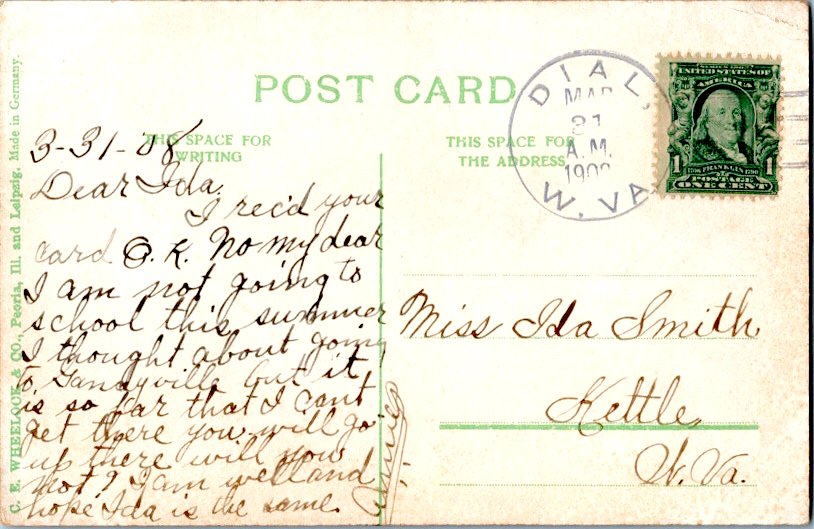 POST CARD
THIS SPACE FOR
WRITING
THIS SPACE FOR
THE ADDRESS
DIAL,
MAR
31
A.M.
1908
W. VA.
SERIES 1902
UNITED STATES OF
AMERICA
1 1
1706 FRANKLIN 1790
POSTAGE
ONE CENT
3-31-'08
Dear Ida.
I rec'd your
card O.K. No my dear
I am not going to
school this summer
I thought about going
to Gandyville but it
is so far that I can't
get there you will go
up there will you
not? I am well and
hope Ida is the same.
Miss Ida Smith
Kettle,
W. Va.
C. E. WHEELOCK & CO., Peoria, Ill. and Leipzig. Made in Germany.